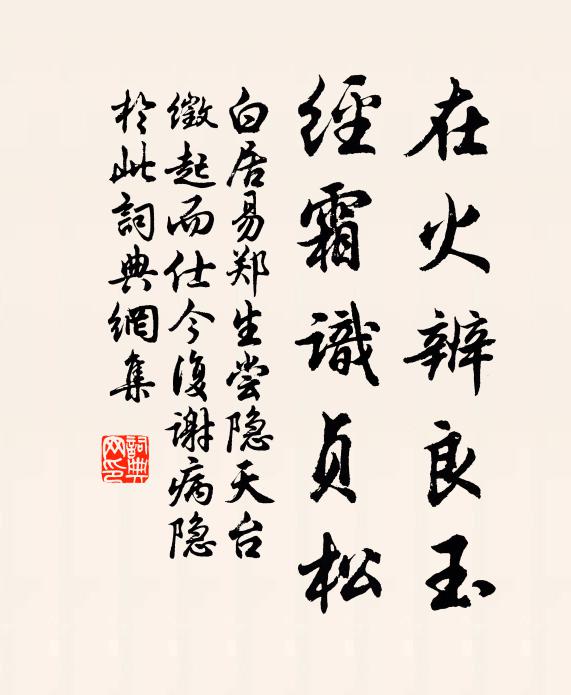 在火辨良玉
經霜識贞松
白居易郑生尝隐天台
徵起而仕今復谢病隐
於此詞典網集
詞典網印